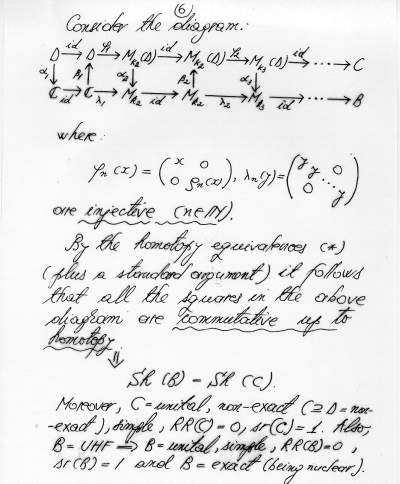 (6)
Consider the diagram:
D —id→ D —φ₁→ M_{k₂}(D) —id→ M_{k₂}(D) —φ₂→ M_{k₃}(D) —id→ ⋯ → C
α₁↓ β₁↑ α₂↓ β₂↑ α₃↓
ℂ —id→ ℂ —λ₁→ M_{k₂} —id→ M_{k₂} —λ₂→ M_{k₃} —id→ ⋯ → B
where:
φₙ(x) = (x 0 ; 0 ρₙ(x)), λₙ(y) = (y y 0 ; 0 ⋱ y)
are injective (n∈ℕ).
By the homotopy equivalences (*)
(plus a standard argument) it follows
that all the squares in the above
diagram are commutative up to
homotopy
⇓
Sh (B) = Sh (C).
Moreover, C = unital, non-exact (⊇ D = non-
-exact), simple, RR(C) = 0, sr(C) = 1. Also,
B = UHF ⟹ B = unital, simple, RR(B) = 0,
sr(B) = 1 and B = exact (being nuclear).